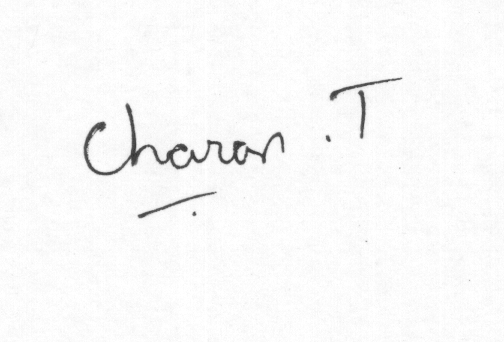 Charan .T